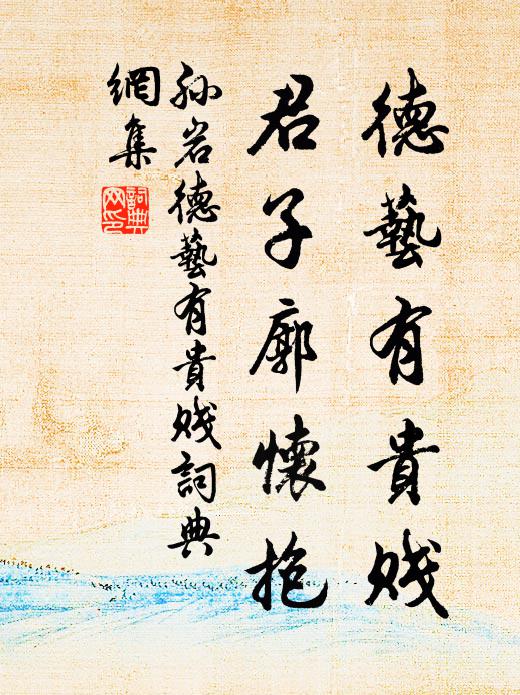 德藝有貴賤
君子廓懷抱
孫岩德藝有貴賤詞典
網集
詞典
网印